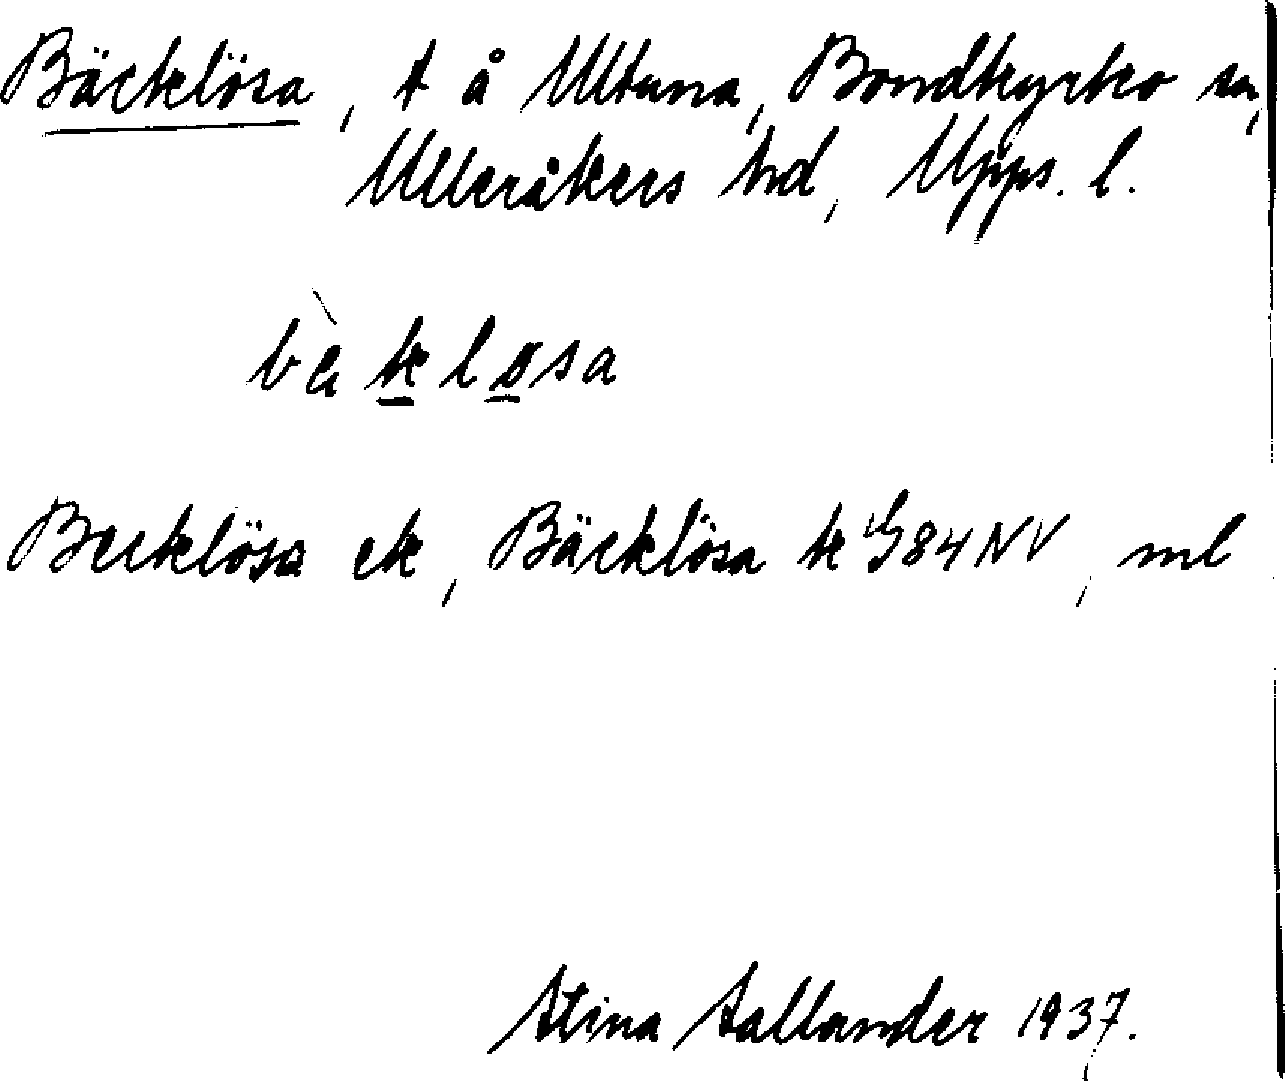 Bäcklösa, t å Ultuna, Bondkyrko sn,
Ulleråkers hd, Upps. l.
bὰkløsa
Becklösa ek, Bäcklösa k G84NV, ml
Stina Sallander 1937.